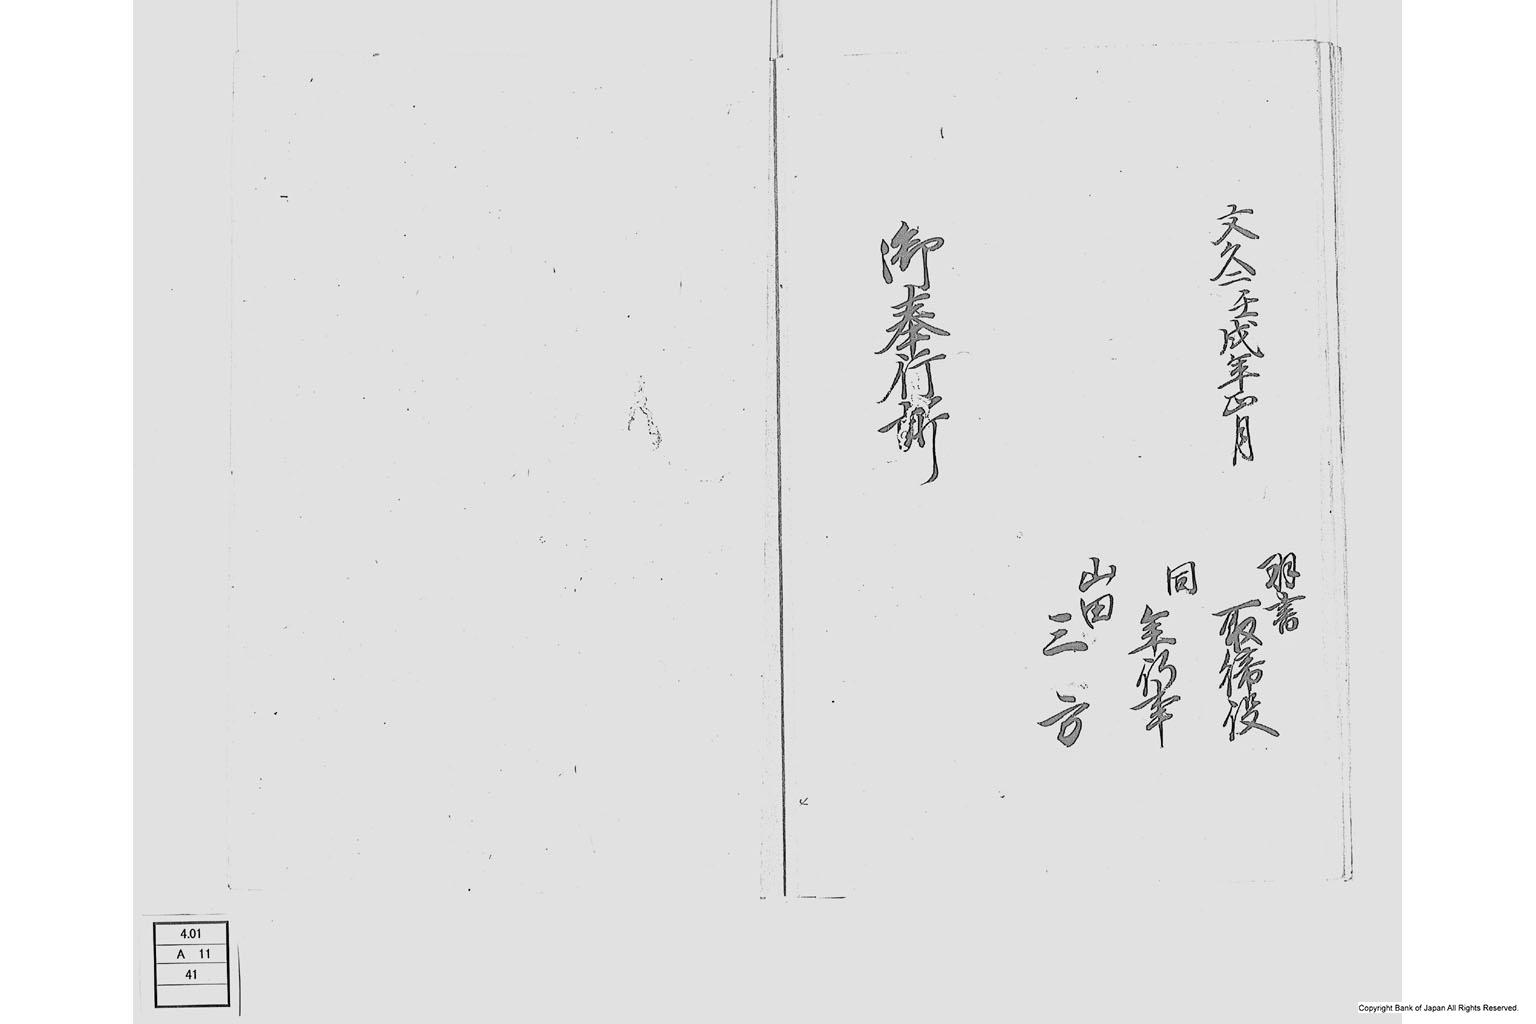 文久二壬戌年正月
羽書
取締役
同
年行事
山田
三方
御奉行所
4.01
A 11
41
Copyright Bank of Japan All Rights Reserved.